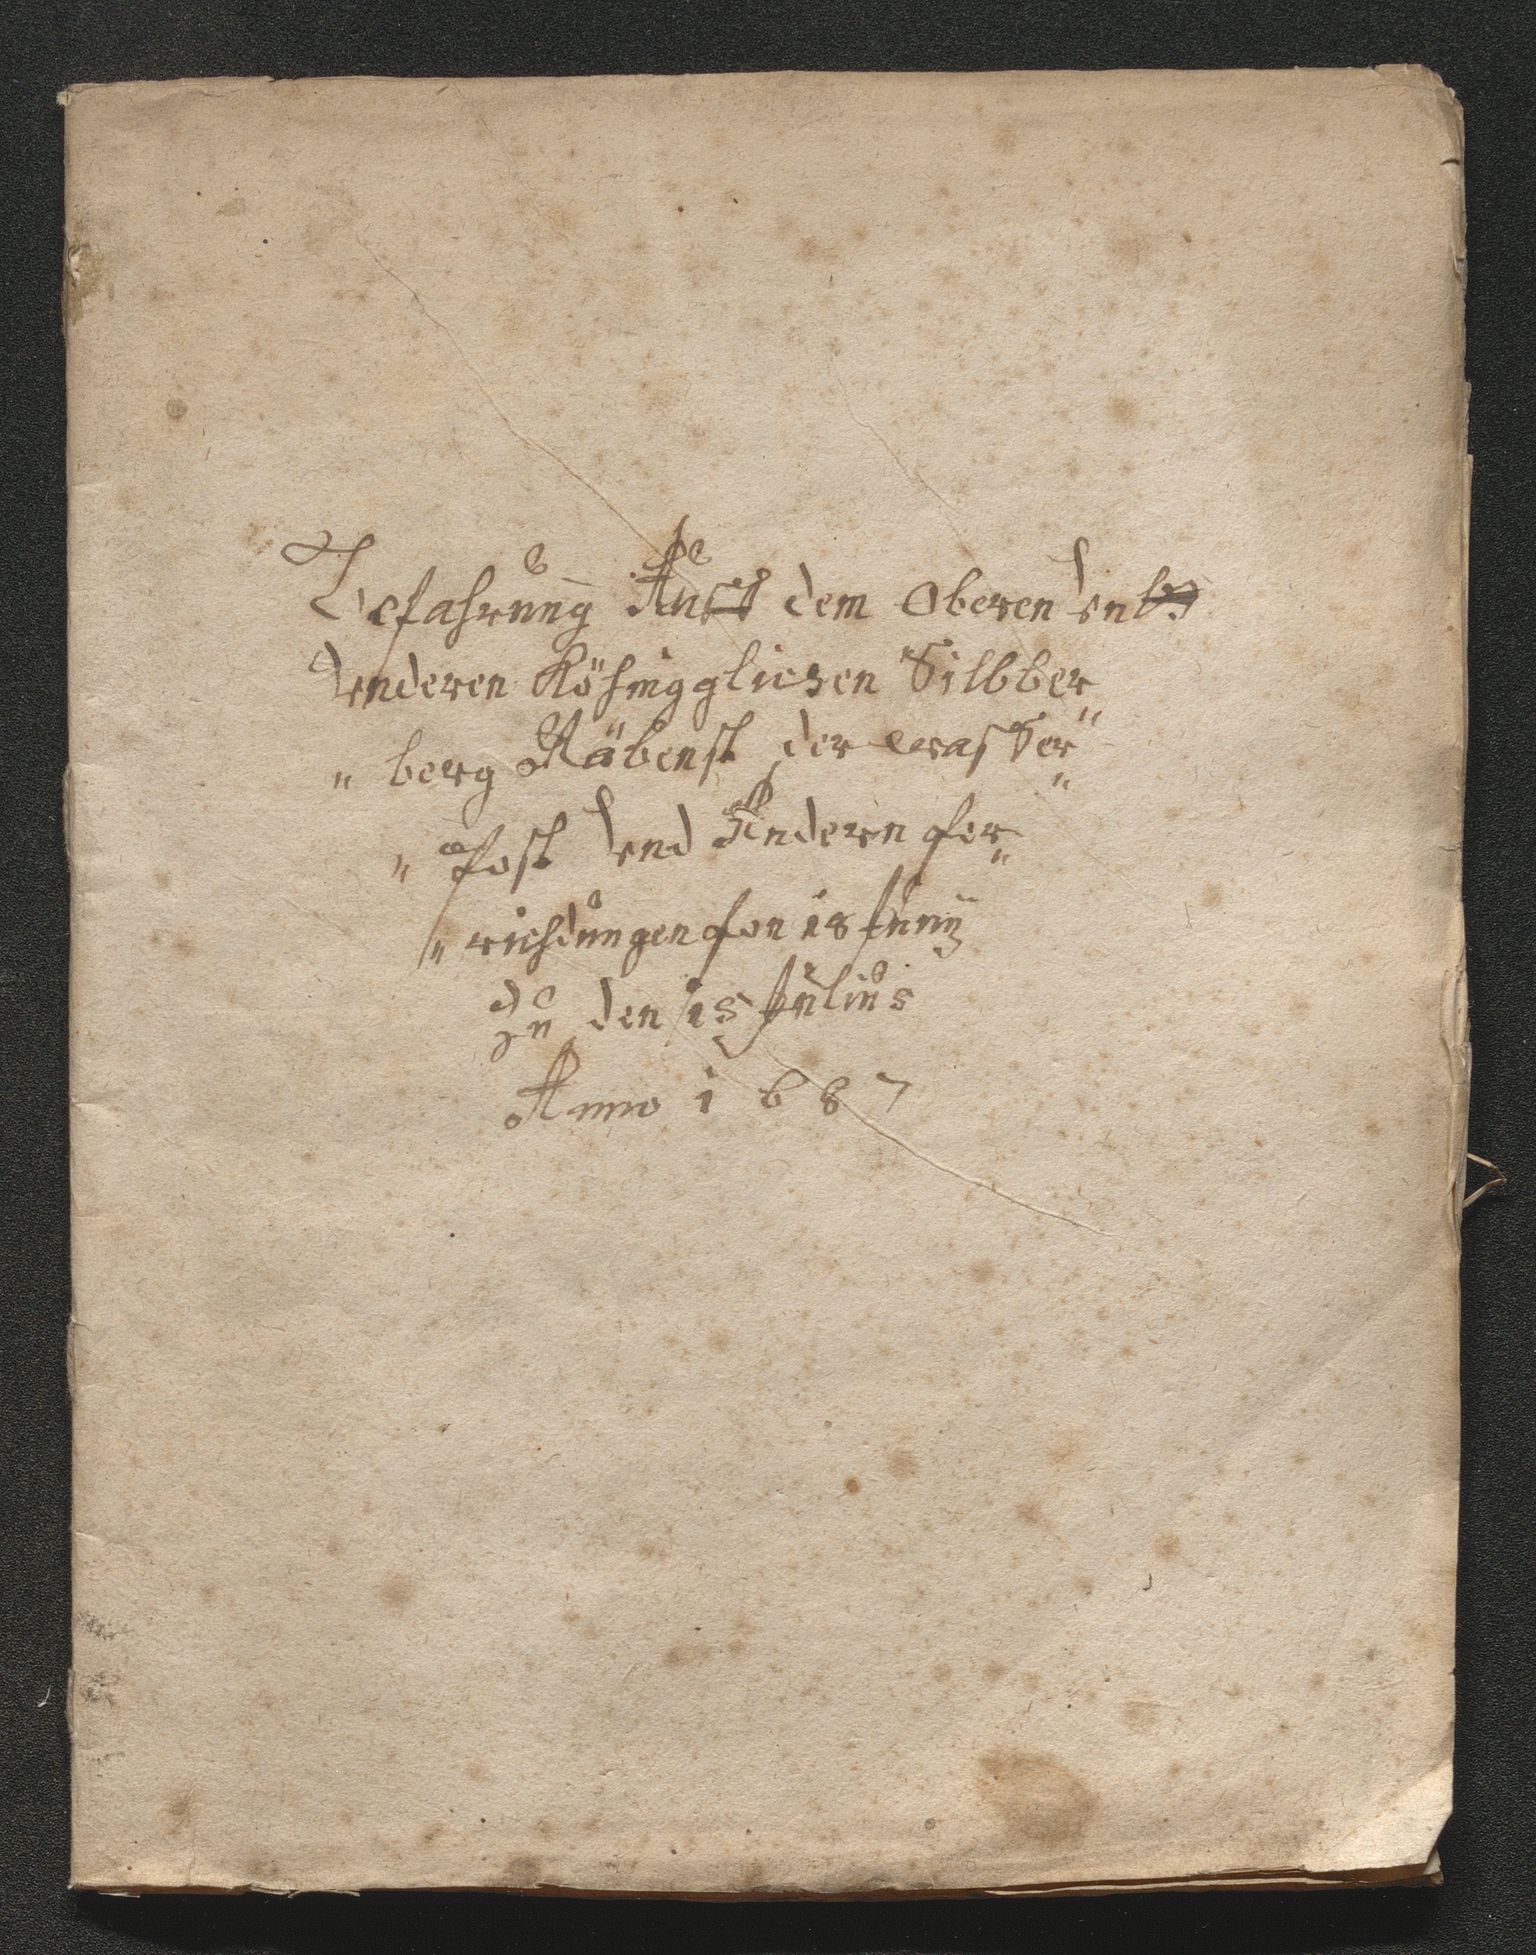 Befahrung Auff dem Oberen Und
Underen Köhinggligen Silbber
" berg Räbenst der wasser "
" kost Und Anderen fer "
" richdungen fon 18 Juny
zu den 18 Julius
Anno 1687